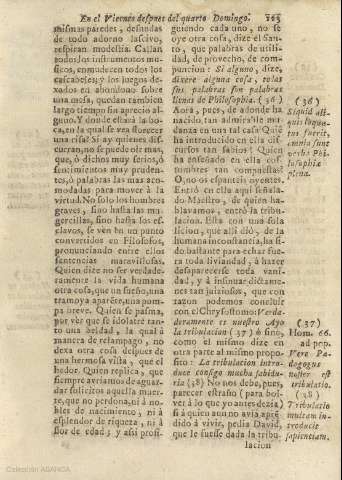 En el Viernes despues del quarto Domingo. 265
mismas paredes, desnudas
de todo adorno lascivo,
respiran modestia. Callan
todos los instrumentos mu-
sicos, enmudecen todos los
cascabeles; y los juegos de-
xados en abandono sobre
una mesa, quedan tambien
largo tiempo sin aprecio al-
guno. Y donde estará la bo-
ca, en la qual se vea florecer
una risa? Si ay quienes dis-
curran, no se puede oír mas,
que, ò dichos muy serios, ò
sentimientos muy pruden-
tes, ò palabras las mas aco-
modadas para mover à la
virtud. No solo los hombres
graves, sino hasta las mu-
gercillas, sino hasta los es-
clavos, se vén en un punto
convertidos en Filosofos,
pronunciando entre ellos
sentencias maravillosas.
Quien dize no ser verdade-
ramente la vida humana
otra cosa, que un sueño, una
tramoya aparente, una pom-
pa breve. Quien se pasma,
por vèr que se idolatre tan-
to una beldad, la qual à
manera de relampago, no
dexa otra cosa despues de
una hermosa vista, que el
hedor. Quien replica, que
siempre aviamos de aguar-
dar solicitos aquella muer-
te, que no perdona, ni à no-
bles de nacimiento, ni à
esplendor de riqueza, ni à
flor de edad; y assi prosi-
guiendo cada uno, no se
oye otra cosa, dize el San-
to, que palabras de utili-
dad, de provecho, de com-
puncion: Si alguno, dize,
dixere alguna cosa, todas
sus palabras son palabras
llenas de Philosophia. (36)
Aora, pues, de donde ha
nacido tan admirable mu-
danza en una tal casa? Quiè
ha introducido en ella dis-
cursos tan sabios? Quien
ha enseñado en ella cos-
tumbres tan compuestas?
O, no os espanteis oyentes.
Entrò en ella aqui señala-
do Maestro, de quien ha-
blavamos, entrò la tribu-
lacion. Esta con una sola
licion, que allì diò, de la
humana inconstancia, ha si-
do bastante para echar fuera
toda liviandad, à hazer
desaparecerse toda vani-
dad, y à insinuar dictàme-
nes tan juiziosos, que con
razon podemos concluìr
con el Chrysostomo: Verda-
deramente es nuestro Ayo
la tribulacion (37) ò sino,
como el mismo dize en
otra parte al mismo propo-
sito: La tribulacion intro-
duce consigo mucha sabidu-
ria (38) No nos debe, pues,
parecer estraño (para bol-
ver à lo que yo antes dezia)
si à quien aun no avia apren-
dido à vivir, pedia David,
que le fuesse dada la tribu-
lacion
(36)
Siquid ali-
quis loquu-
tus fuerit,
omnia sunt
verba Phi-
losophiæ
plena.
(37)
Hom. 66.
ad pop.
Vere Pæ-
dagogus
noster est
tribulatio.
(38)
Tribulatio
multam in-
troducit
sapientiam.
Colección ABANCA